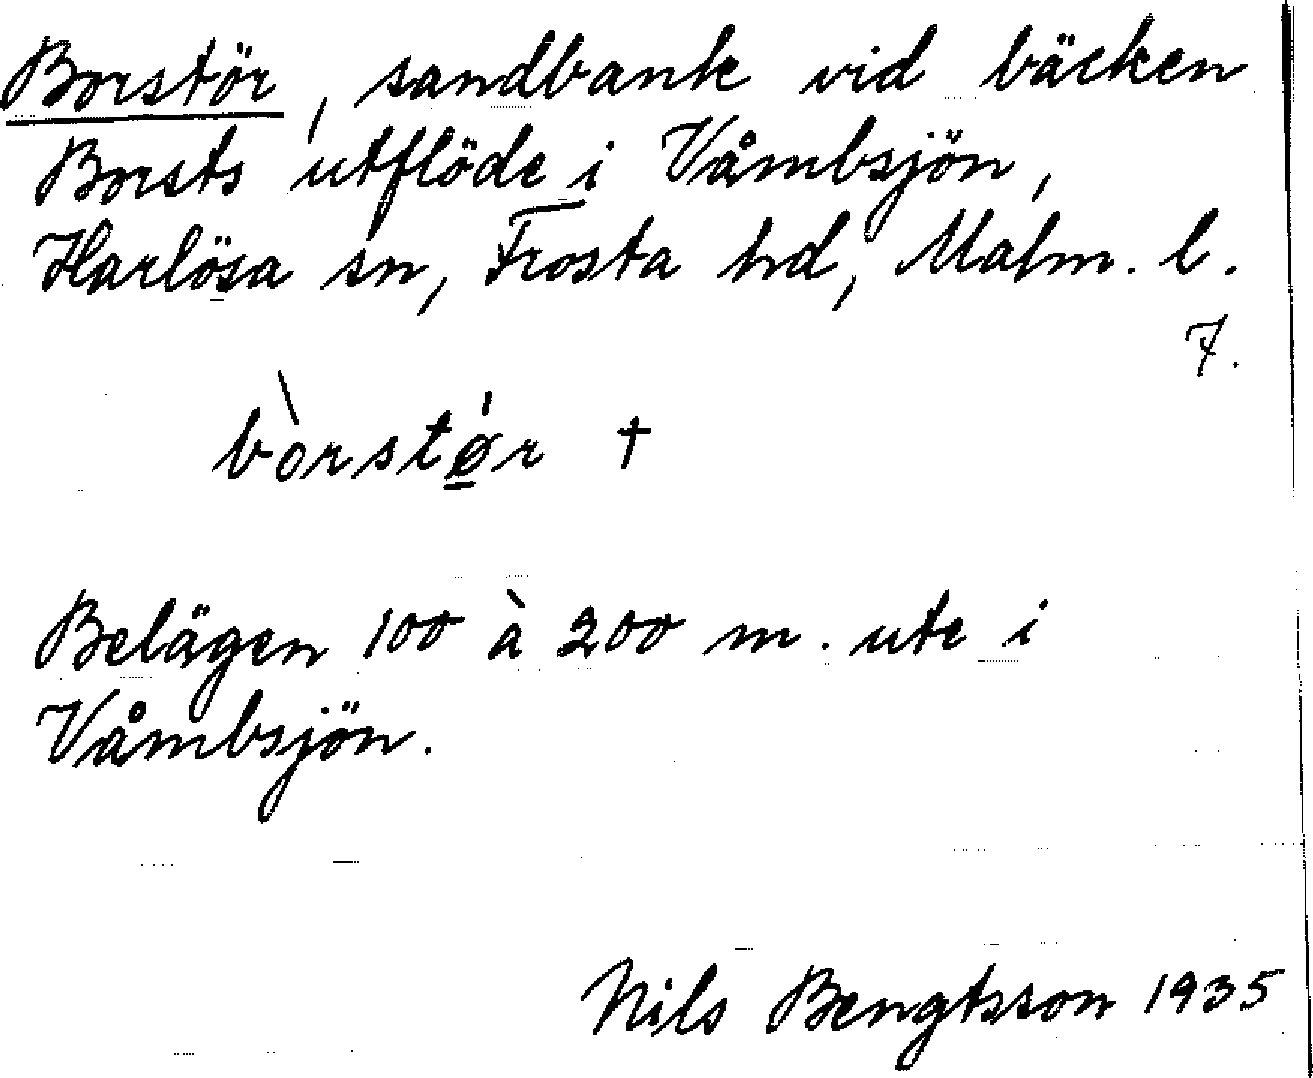 Borstör, sandbank vid bäcken
Borsts utflöde i Våmbsjön,
Harlösa sn, Frosta hd, Malm. l.
7.
bòrstǿ̠r †
Belägen 100 à 200 m. ute i
Våmbsjön.
Nils Bengtsson 1935